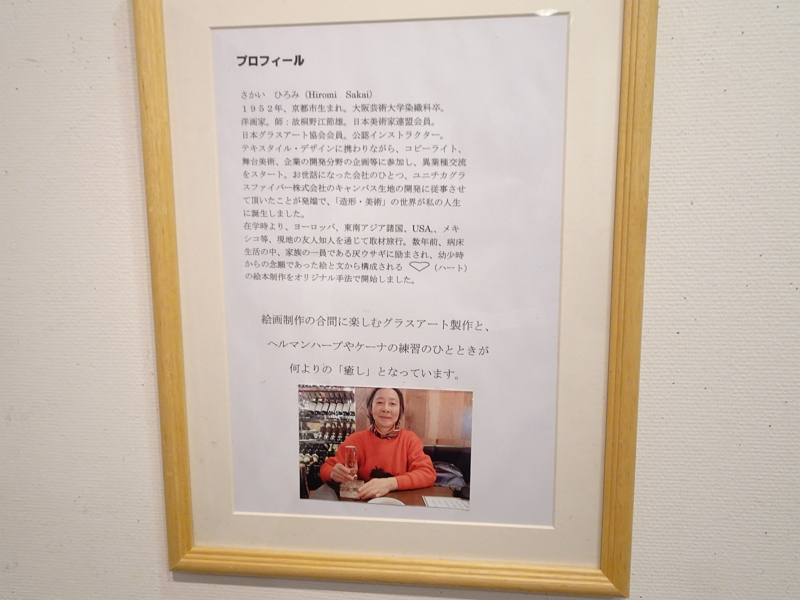 プロフィール
さかい　ひろみ（Hiromi　Sakai）
１９５２年、京都市生まれ。大阪芸術大学染織科卒。
洋画家。師：故桐野江節雄。日本美術家連盟会員。
日本グラスアート協会会員。公認インストラクター。
テキスタイル・デザインに携わりながら、コピーライト、
舞台美術、企業の開発分野の企画等に参加し、異業種交流
をスタート。お世話になった会社のひとつ、ユニチカグラ
スファイバー株式会社のキャンバス生地の開発に従事させ
て頂いたことが発端で、「造形・美術」の世界が私の人生
に誕生しました。
在学時より、ヨーロッパ、東南アジア諸国、USA,、メキ
シコ等、現地の友人知人を通じて取材旅行。数年前、病床
生活の中、家族の一員である灰ウサギに励まされ、幼少時
からの念願であった絵と文から構成される　♡（ハート）
の絵本制作をオリジナル手法で開始しました。
絵画制作の合間に楽しむグラスアート製作と、
ヘルマンハープやケーナの練習のひとときが
何よりの「癒し」となっています。